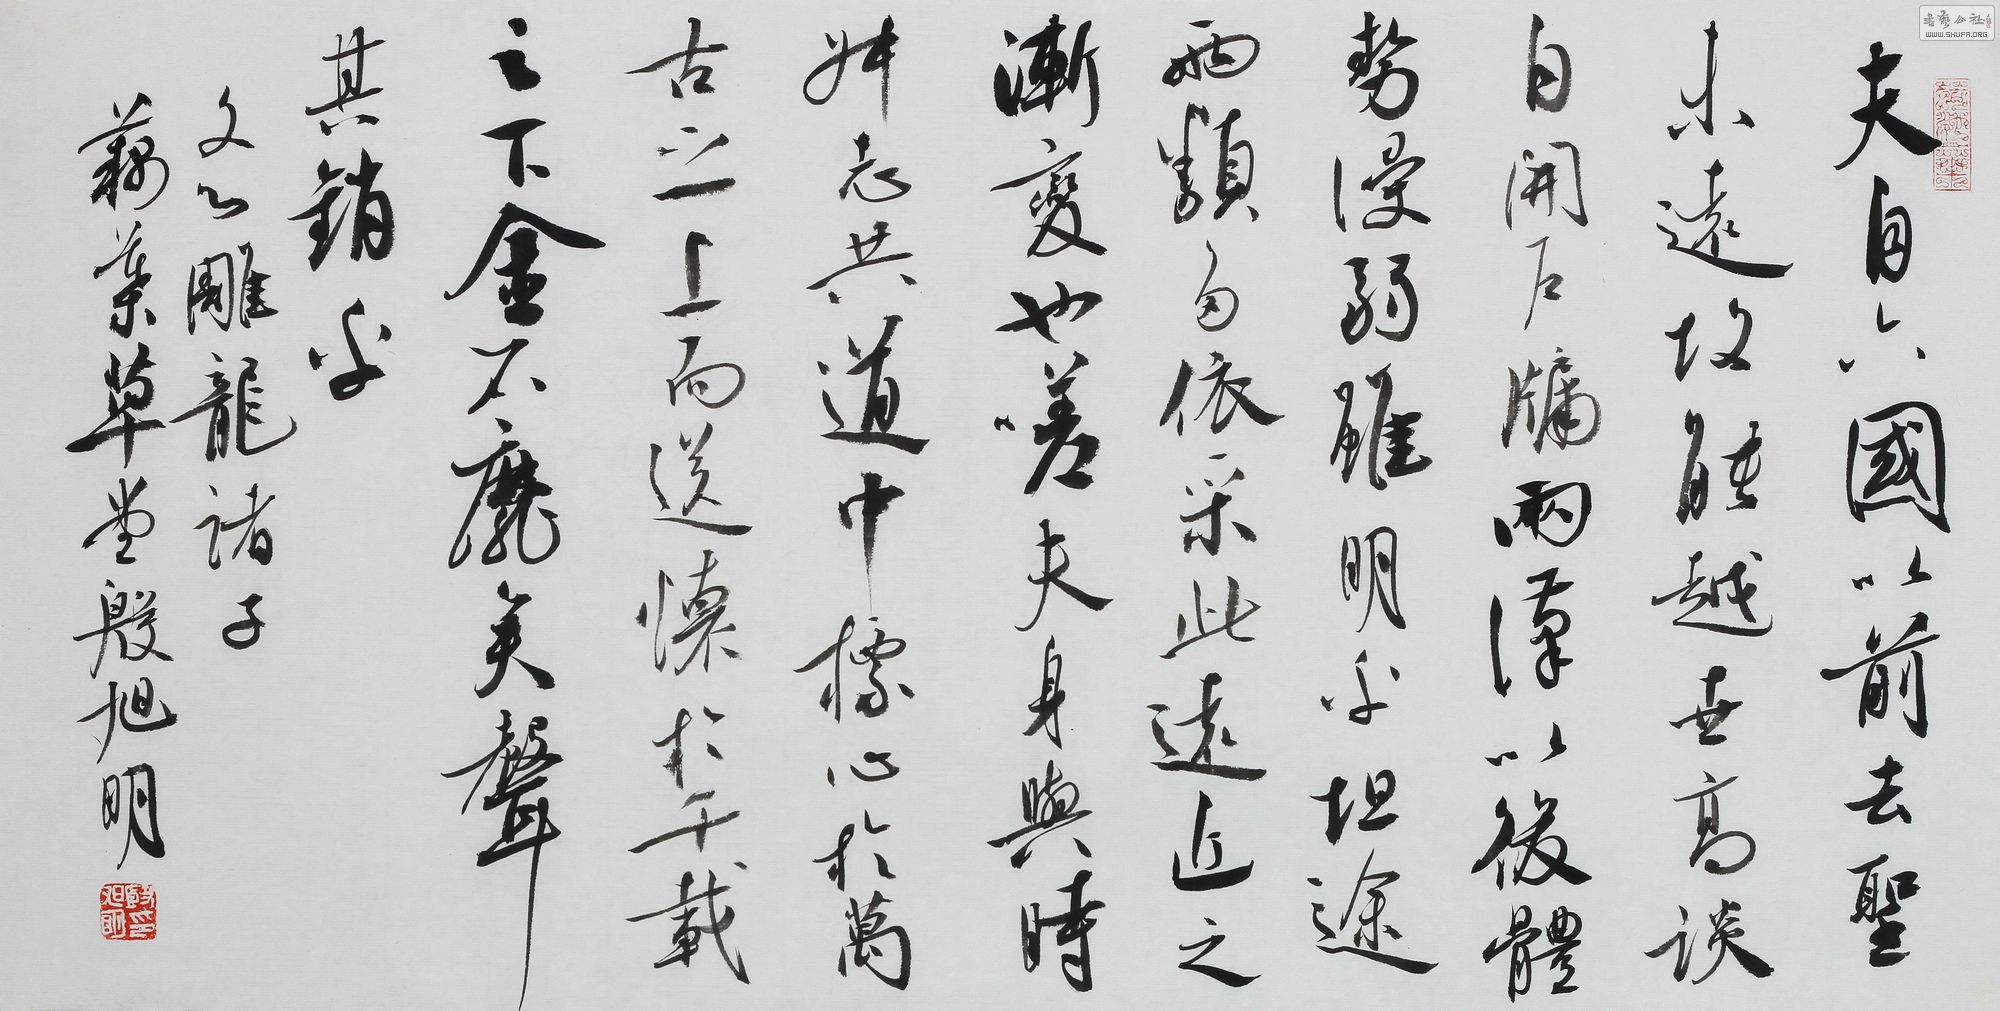 夫自六國以前去聖
未遠故能越世高談
自開戶牖兩漢以後體
勢漫弱雖明乎坦途
而類多依采此遠近之
漸變也嗟夫身與時
舛志共道申標心於萬
古之上而送懷於千載
之下金石靡矣聲
其銷乎
文心雕龍諸子
藕葉草堂殷旭明
殷旭明印
書藝公社
WWW.SHUFA.ORG